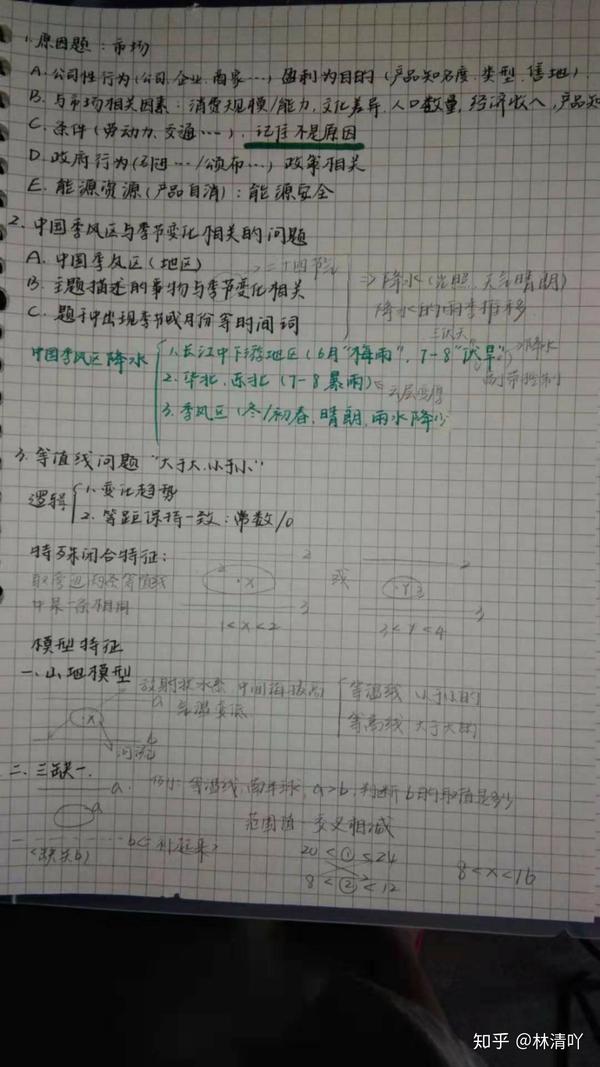 1.原因题:市场
A.公司性行为(公司.企业.商家…)盈利为目的(产品知名度.类型.售地)
B.与市场相关因素:消费规模/能力,文化差异,人口数量,经济收入,产品知
C.条件(劳动力、交通…),记住不是原因
D.政府行为(引进…/颁布…)政策相关
E.能源资源(产品自消):能源安全
2.中国季风区与季节变化相关的问题
A.中国季风区(地区) 二十四节气
B.主题描述的事物与季节变化相关 ⇒降水(光照.天气晴朗)
C.题干中出现季节或月份等时间词 降水的雨季推移
三伏天
中国季风区降水
1.长江中下游地区(6月"梅雨",7-8"伏旱") 降水
2.华北.东北(7-8暴雨)
3.季风区(冬/初春,晴朗,雨水降少
3.等值线问题"大于大,小于小"
逻辑
1.变化趋势
2.等距保持一致:常数/0
特殊闭合特征:
2 X 3 或 2 Y 3
中某一条相同
1<X<2 3<Y<4
模型特征
一、山地模型 放射状水系 中间海拔高
等温线 小于小的
等高线 大于大的
a X b
河流
二.三缺一.
a 等温线,南半球,a>b,判断b的取值是多少
a
范围值 交叉相减
<缺失b)
20<①≤24
8<②<12
8<x<16
知乎 @林清吖